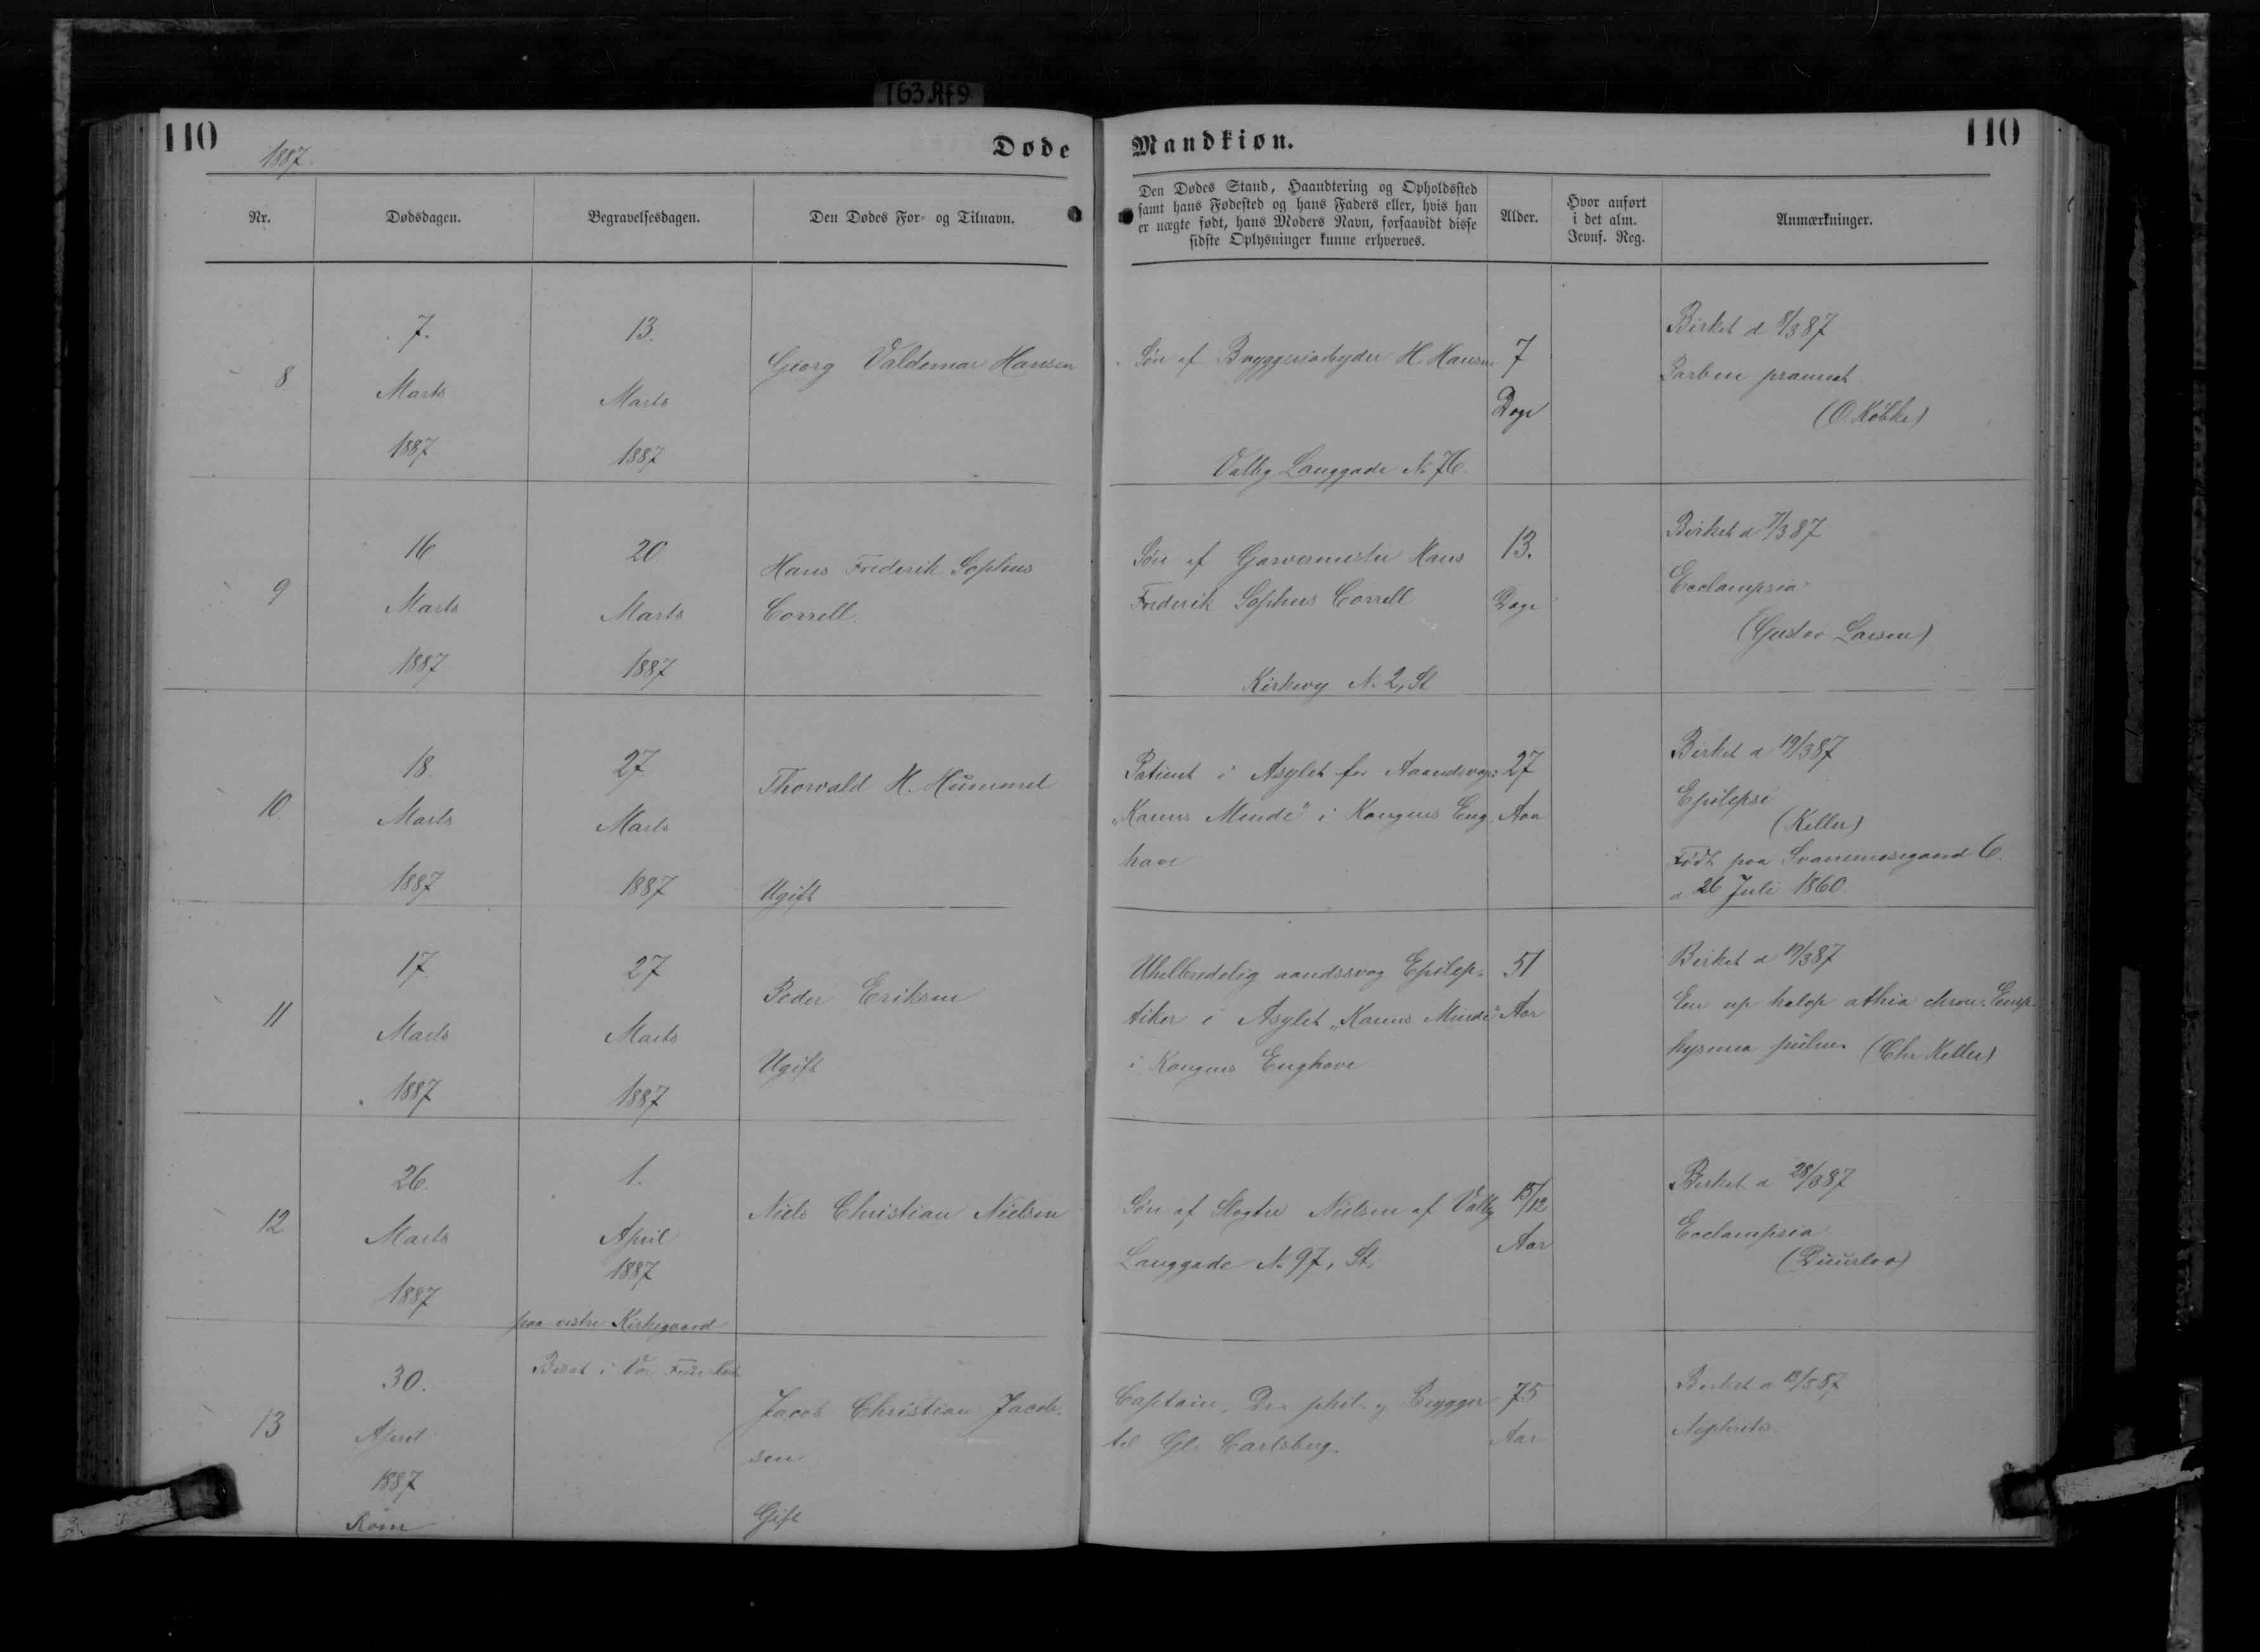 163 Af 9
110
1887.
Døde
Mandkiøn.
110
Nr.
Dødsdagen.
Begravelsesdagen.
Den Dødes For- og Tilnavn.
Den Dødes Stand, Haandtering og Opholdssted
samt hans Fødested og hans Faders eller, hvis han
er uægte født, hans Moders Navn, forsaavidt disse
sidste Oplysninger kunne erhverves.
Alder.
Hvor anført
i det alm.
Jevnf. Reg.
Anmærkninger.
8
7.
Marts
1887
13.
Marts
1887
Georg Valdemar Hansen
Søn af H. Hansen
Valby Langgade No 76.
7
Dage
Birket d 8/3 87
(O Købke)
9
16
Marts
1887
20
Marts
1887
Hans Frederik Sophus
Correll.
Søn af Garvermester Hans
Frederik Sophus Correll
Kirkevej No 2, St
13.
Dage
Birket d 7/3 87
Ecclampsia
(Gustav Larsen)
10
18.
Marts
1887
27.
Marts
1887
Thorvald H. Hummel
Ugift
Patient i Asylet for Aandssvage
"Karens Minde" i Kongens Eng
have
27
Aar
Birket d 19/3 87
Epilepsi
(Keller)
Født paa Svanemosegaard 6.
d 26 Juli 1860.
11
17.
Marts
1887
27
Marts
1887
Peder Eriksen
Ugift
Uhelbredelig aandssvag Epilep-
tiker i Asylet "Karens Minde"
i Kongens Enghave
51
Aar
Birket d 19/3 87
En cephalopathia chron. Emp-
hysema pulm. (Chr Keller)
12
26.
Marts
1887
1.
April
1887
paa vestre Kirkegaard
Niels Christian Nielsen
Søn af Slagter Nielsen af Valby
Langgade No 97, St.
15/12
Aar
Birket d 28/3 87
Ecclampsia
(Duurloo)
13
30.
April
1887
Rom
Bisat i Vor Frue Kirke
Jacob Christian Jacob-
sen
Gift
Captain, Dr. phil. og Brygger
til Gl. Carlsberg.
75
Aar
Nephritis